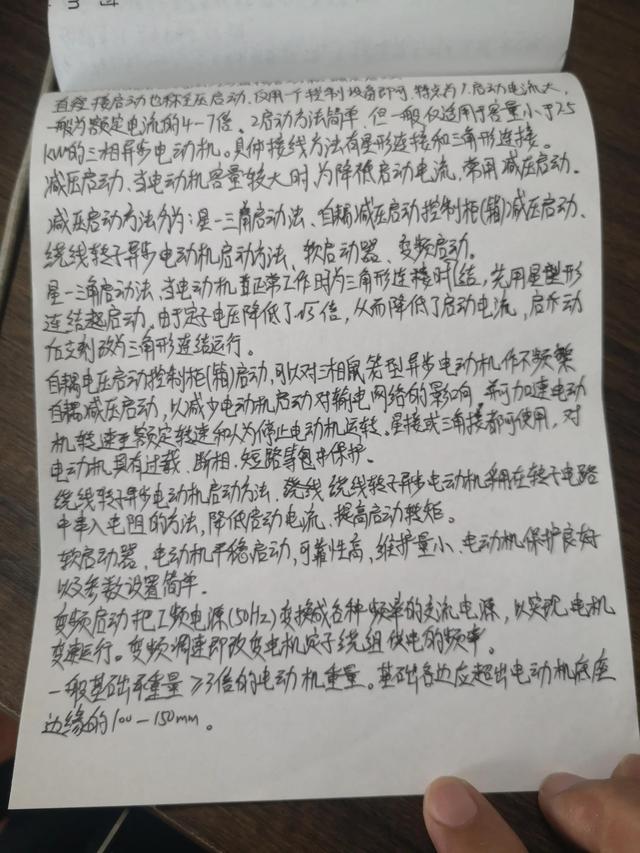 直接接启动也称全压启动.仅用一个控制设备即可.特点为1.启动电流大,
一般为额定电流的4-7倍。2启动方法简单,但一般仅适用于容量小于7.5
KW的三相异步电动机。具体接线方法有星形连接和三角形连接。
减压启动、当电动机容量较大时,为降低启动电流,常用减压启动。
减压启动方法分为:星-三角启动法、自耦减压启动控制柜(箱)减压启动、
绕线转子异步电动机启动方法、软启动器、变频启动。
星-三角启动法、当电动机在正常工作时为三角形连接时结,先用星型形
连结起启动,由于定子电压降低了√3倍,从而降低了启动电流,启动
方立刻改为三角形连结运行。
自耦电压启动控制柜(箱)启动,可以对三相鼠笼型异步电动机作不频繁
自耦减压启动,以减少电动机启动对输电网络的影响,并可加速电动
机转速至额定转速和人为停止电动机运转。星接或三角接都可使用,对
电动机具有过载、断相、短路等包中保护。
绕线转子异步电动机启动方法、绕线 绕线转子异步电动机采用在转子电路
中串入电阻的方法,降低启动电流、提高启动转矩。
软启动器、电动机平稳启动,可靠性高,维护量小、电动机保护良好
以及参数设置简单.
变频启动把工频电源(50Hz)变换成各种频率的交流电源,以实现电机
变速运行。变频调速即改变电机定子绕组供电的频率。
一般基础承重量≥3倍的电动机重量。基础各边应超出电动机底座
边缘的100-150mm。